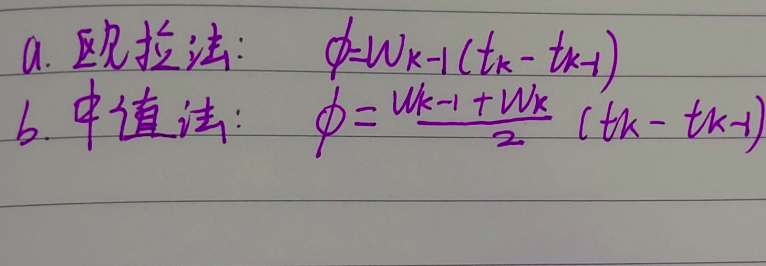 a. 欧拉法: ϕ=Wk-1(tk-tk-1)
b. 中值法: ϕ=Wk-1+Wk/2 (tk-tk-1)